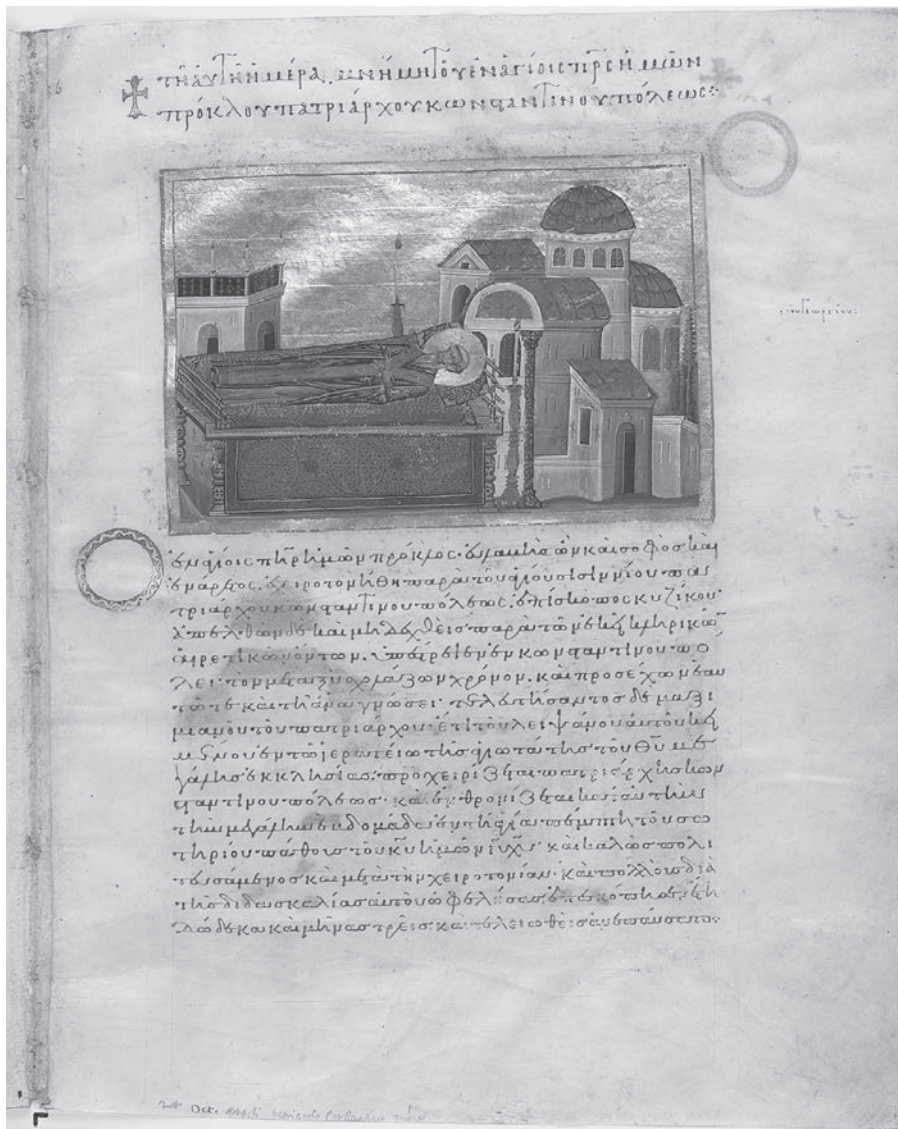 τῆ αὐτῆ ἡμέρα. μνήμη τοῦ ἐν ἁγίοις πρς ἡμῶν
πρόκλου πατριάρχου κωνσταντινουπόλεως:
τοῦ γεωργίου:
ὁ ἐν ἁγίοις πηρ ἡμῶν πρόκλος. ὢν καὶ σοφὸς καὶ
ἐνάρετος, ἐχειροτονήθη παρὰ τοῦ ἁγίου σισιννίου πα
τριάρχου κωνσταντινουπόλεως, ἐπίσκοπος κυζίκου.
ἀπελθὼν δὲ καὶ μὴ δεχθεὶς παρὰ τῶν ἐκεῖ κληρικῶν
αἱρετικῶν ὄντων. κωνσταντινουπό
λει. τὸν μεταξὺ σχολάζων χρόνον. καὶ προσέχων ἑαυ
τῶ τε καὶ τῆ ἀναγνώσει. τελευτήσαντος δὲ μαξι
μιανοῦ τοῦ πατριάρχου. ἔτι τοῦ λειψάνου αὐτοῦ κει
μένου ἐν τῶ ἱερατείω τῆς ἁγιωτάτης τοῦ θυ με
γάλης ἐκκλησίας. προχειρίζεται πατριάρχης κων
σταντινουπόλεως. καὶ ἐνθρονίζεται κατ αὐτὴν
τὴν μεγάλην ἑβδομάδα, ἐν τῆ ἁγία πέμπτη τοῦ σω
τηρίου πάθους τοῦ κυ ἡμῶν ιυ χυ. καὶ καλῶς πολι
τευσάμενος καὶ μετὰ τὴν χειροτονίαν. καὶ πολλοὺς διὰ
τῆς διδασκαλίας αὐτοῦ ὠφελήσας, ἔτη
δώδεκα καὶ μῆνας τρεῖς. καὶ τελειωθεὶς ἀνεπαύσατο.
24 Oct.